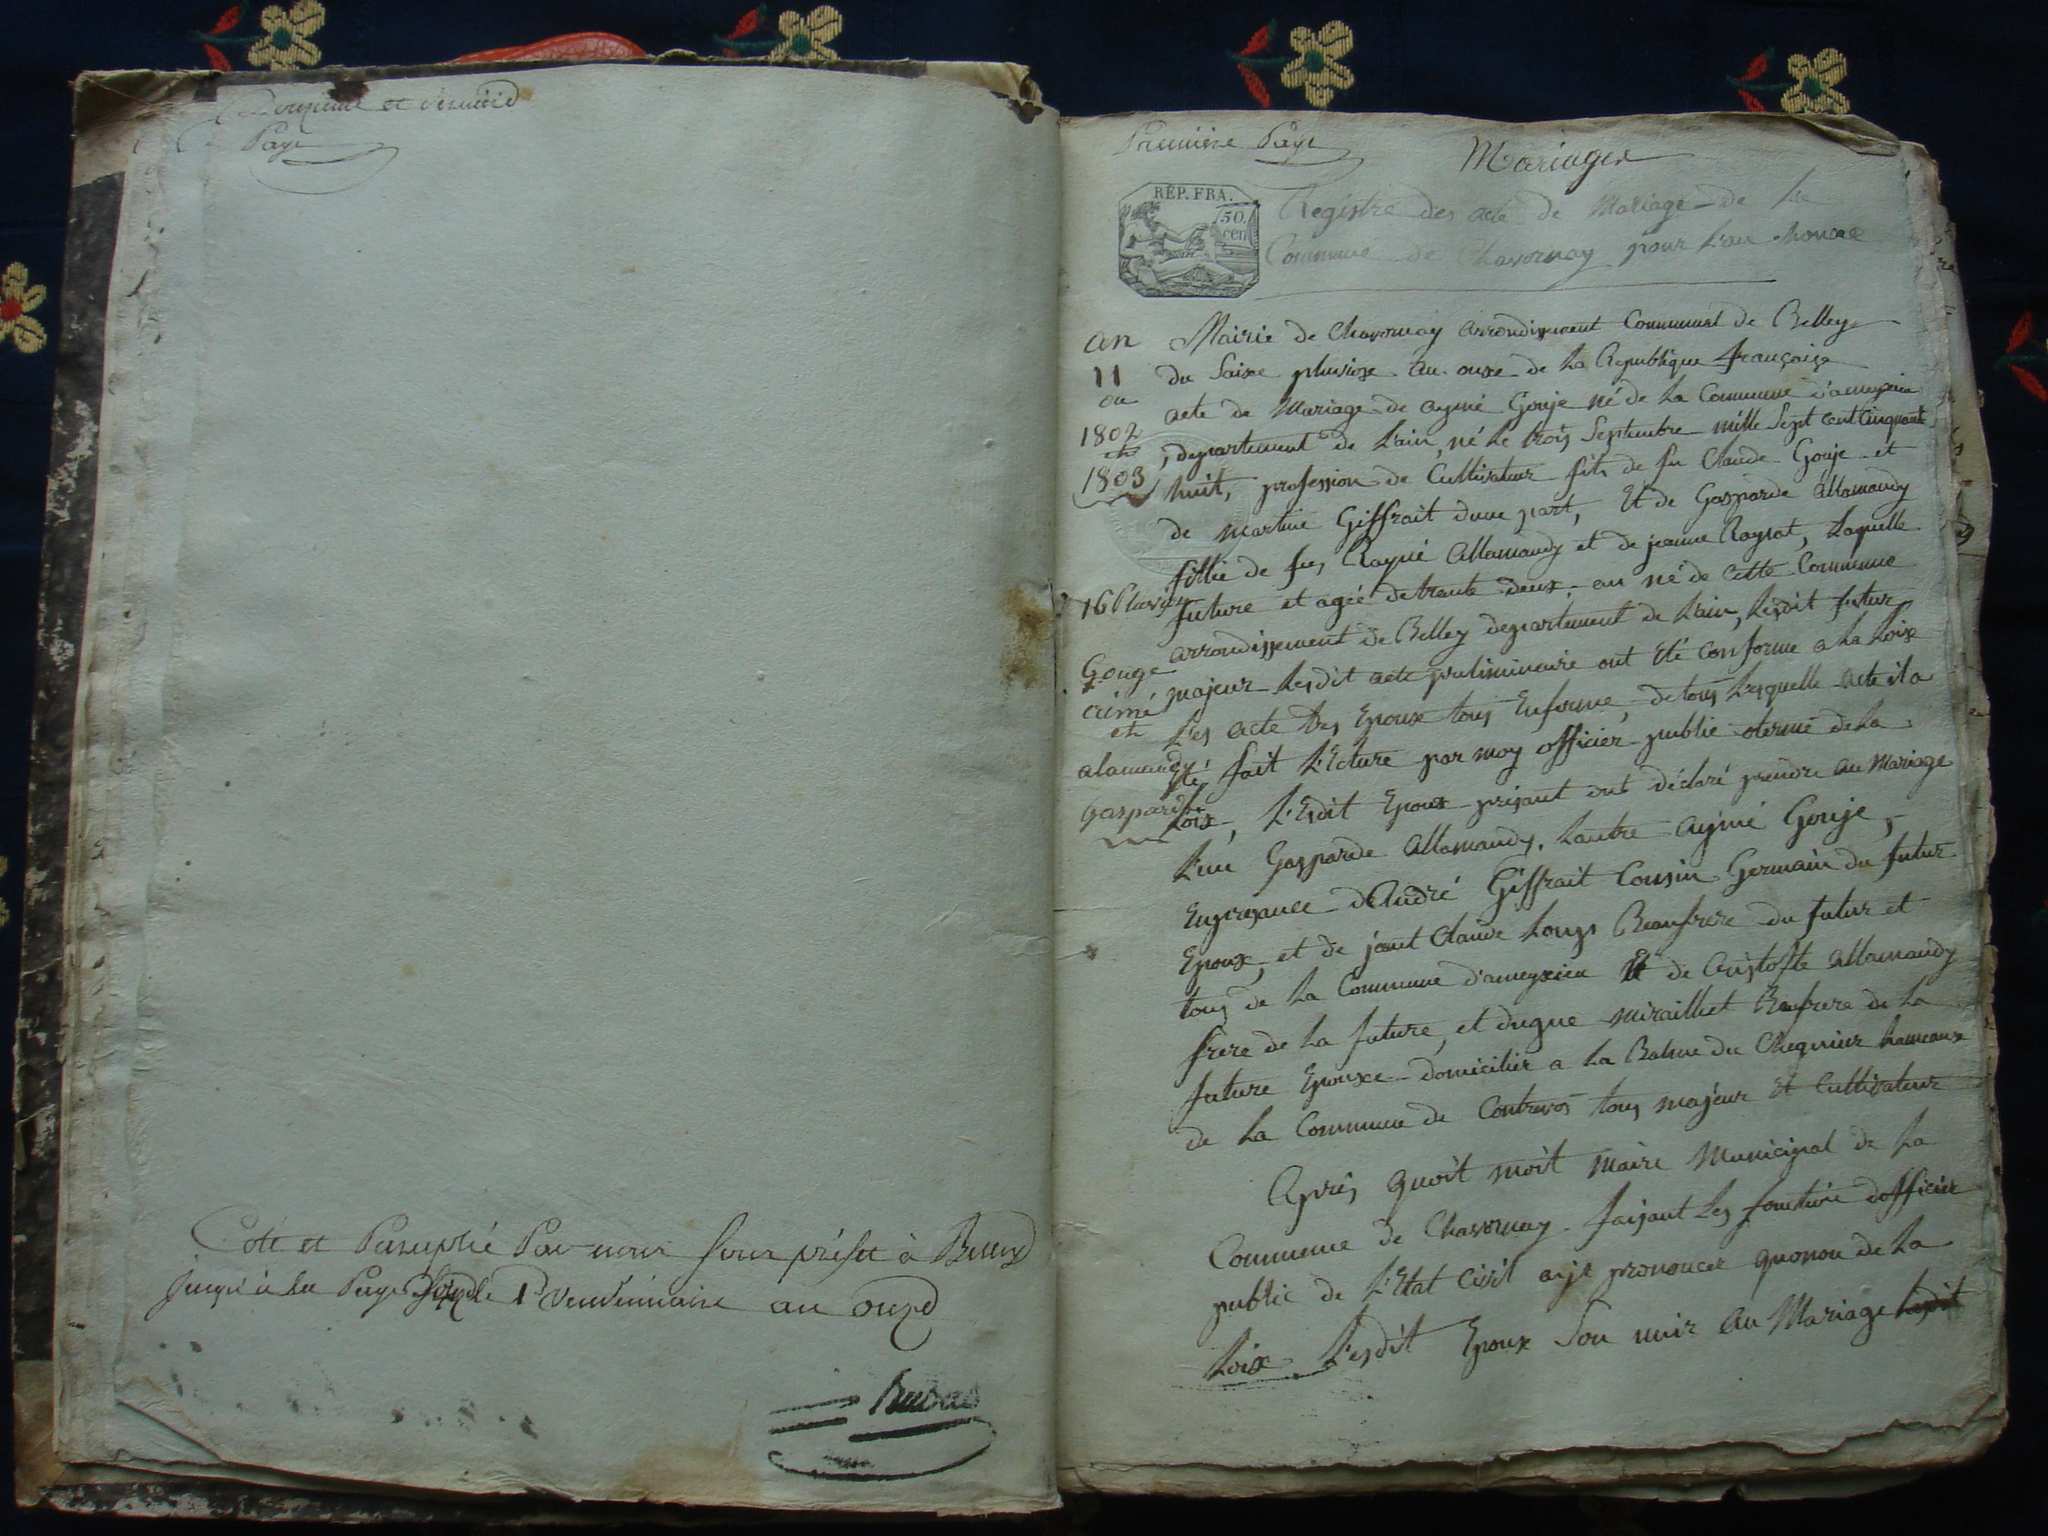 Douzieme et derniere
Page
Coté et Paraphé Par nous sous préfet à
jusqu'à la Page 1er vendemiaire an onze
Premiere Page
Mariages
REP. FRA.
50
cen
Registre des acte de Mariage de la
Commune de Chavornay pour l'an honze
an
11
ou
1802
et
1803
16 Pluvio
Gouge
aimé
et
alamandy
gasparde
Mairie de Chavornay arrondissement Communal de Belley
du Saixe pluviose an onze de la Republique françaiçe
acte de Mariage de aymé Gouje né de la Commune d'ameyzieu
departement de L'ain, né le trois Septembre mille Sept cent Cinquante
huit, profession de Cultivateur fils de fu Claude Gouje et
de martine Giffrait dune part, Et de Gasparde allamandy
fillie de fu allamandy et de jeanne Raynot, Laquelle
future et agée detrante deux an né de Cette Commune
arrondissement de Belley departement de L'ain, Lesdit futur
majeur Lesdit acte preliminaire ont Eté conforme a La Loix
Les acte Des Epoux tous Enforme, de tous Lesquelle acte il a
Eté fait L'Ecture par moy officier public oterme de La
Loix, L'Esdit Epoux prisant ont déclaré prendre au Mariage
L'un Gasparde allamandy, Lautre aymé Gouje,
Enpresance d'André Giffrait Cousin Germain du futur
Epoux, et de jant Claude Longs Beaufrere du futur et
tous de La Commune d'ameyzieu Et de Cristofle allamandy
frere de La future, et dugue miralliet Baufrere de La
future Epouxe domicilier a La Balme du Chegnieu hameaux
de La Commune de Contrevos tous majeur et Cultivateur
Après quoit moit Maire Municipal de La
Commune de Chavornay faisant Les fonction dofficier
public de L'Etat Civil aije prononcer quonon de La
Loix L'esdit Epoux Son unir au Mariage